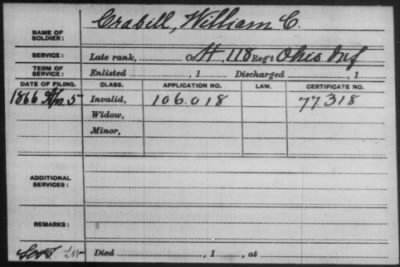 Crabill, William C.
NAME OF SOLDIER:
SERVICE: Late rank, Co. H, 118 Reg't Ohio Inf
TERM OF SERVICE: Enlisted , 1 Discharged , 1
DATE OF FILING. CLASS. APPLICATION NO. LAW. CERTIFICATE NO.
1866 Apr. 5 Invalid, 106.018 77318
Widow,
Minor,
ADDITIONAL SERVICES:
REMARKS:
Died , 1 , at